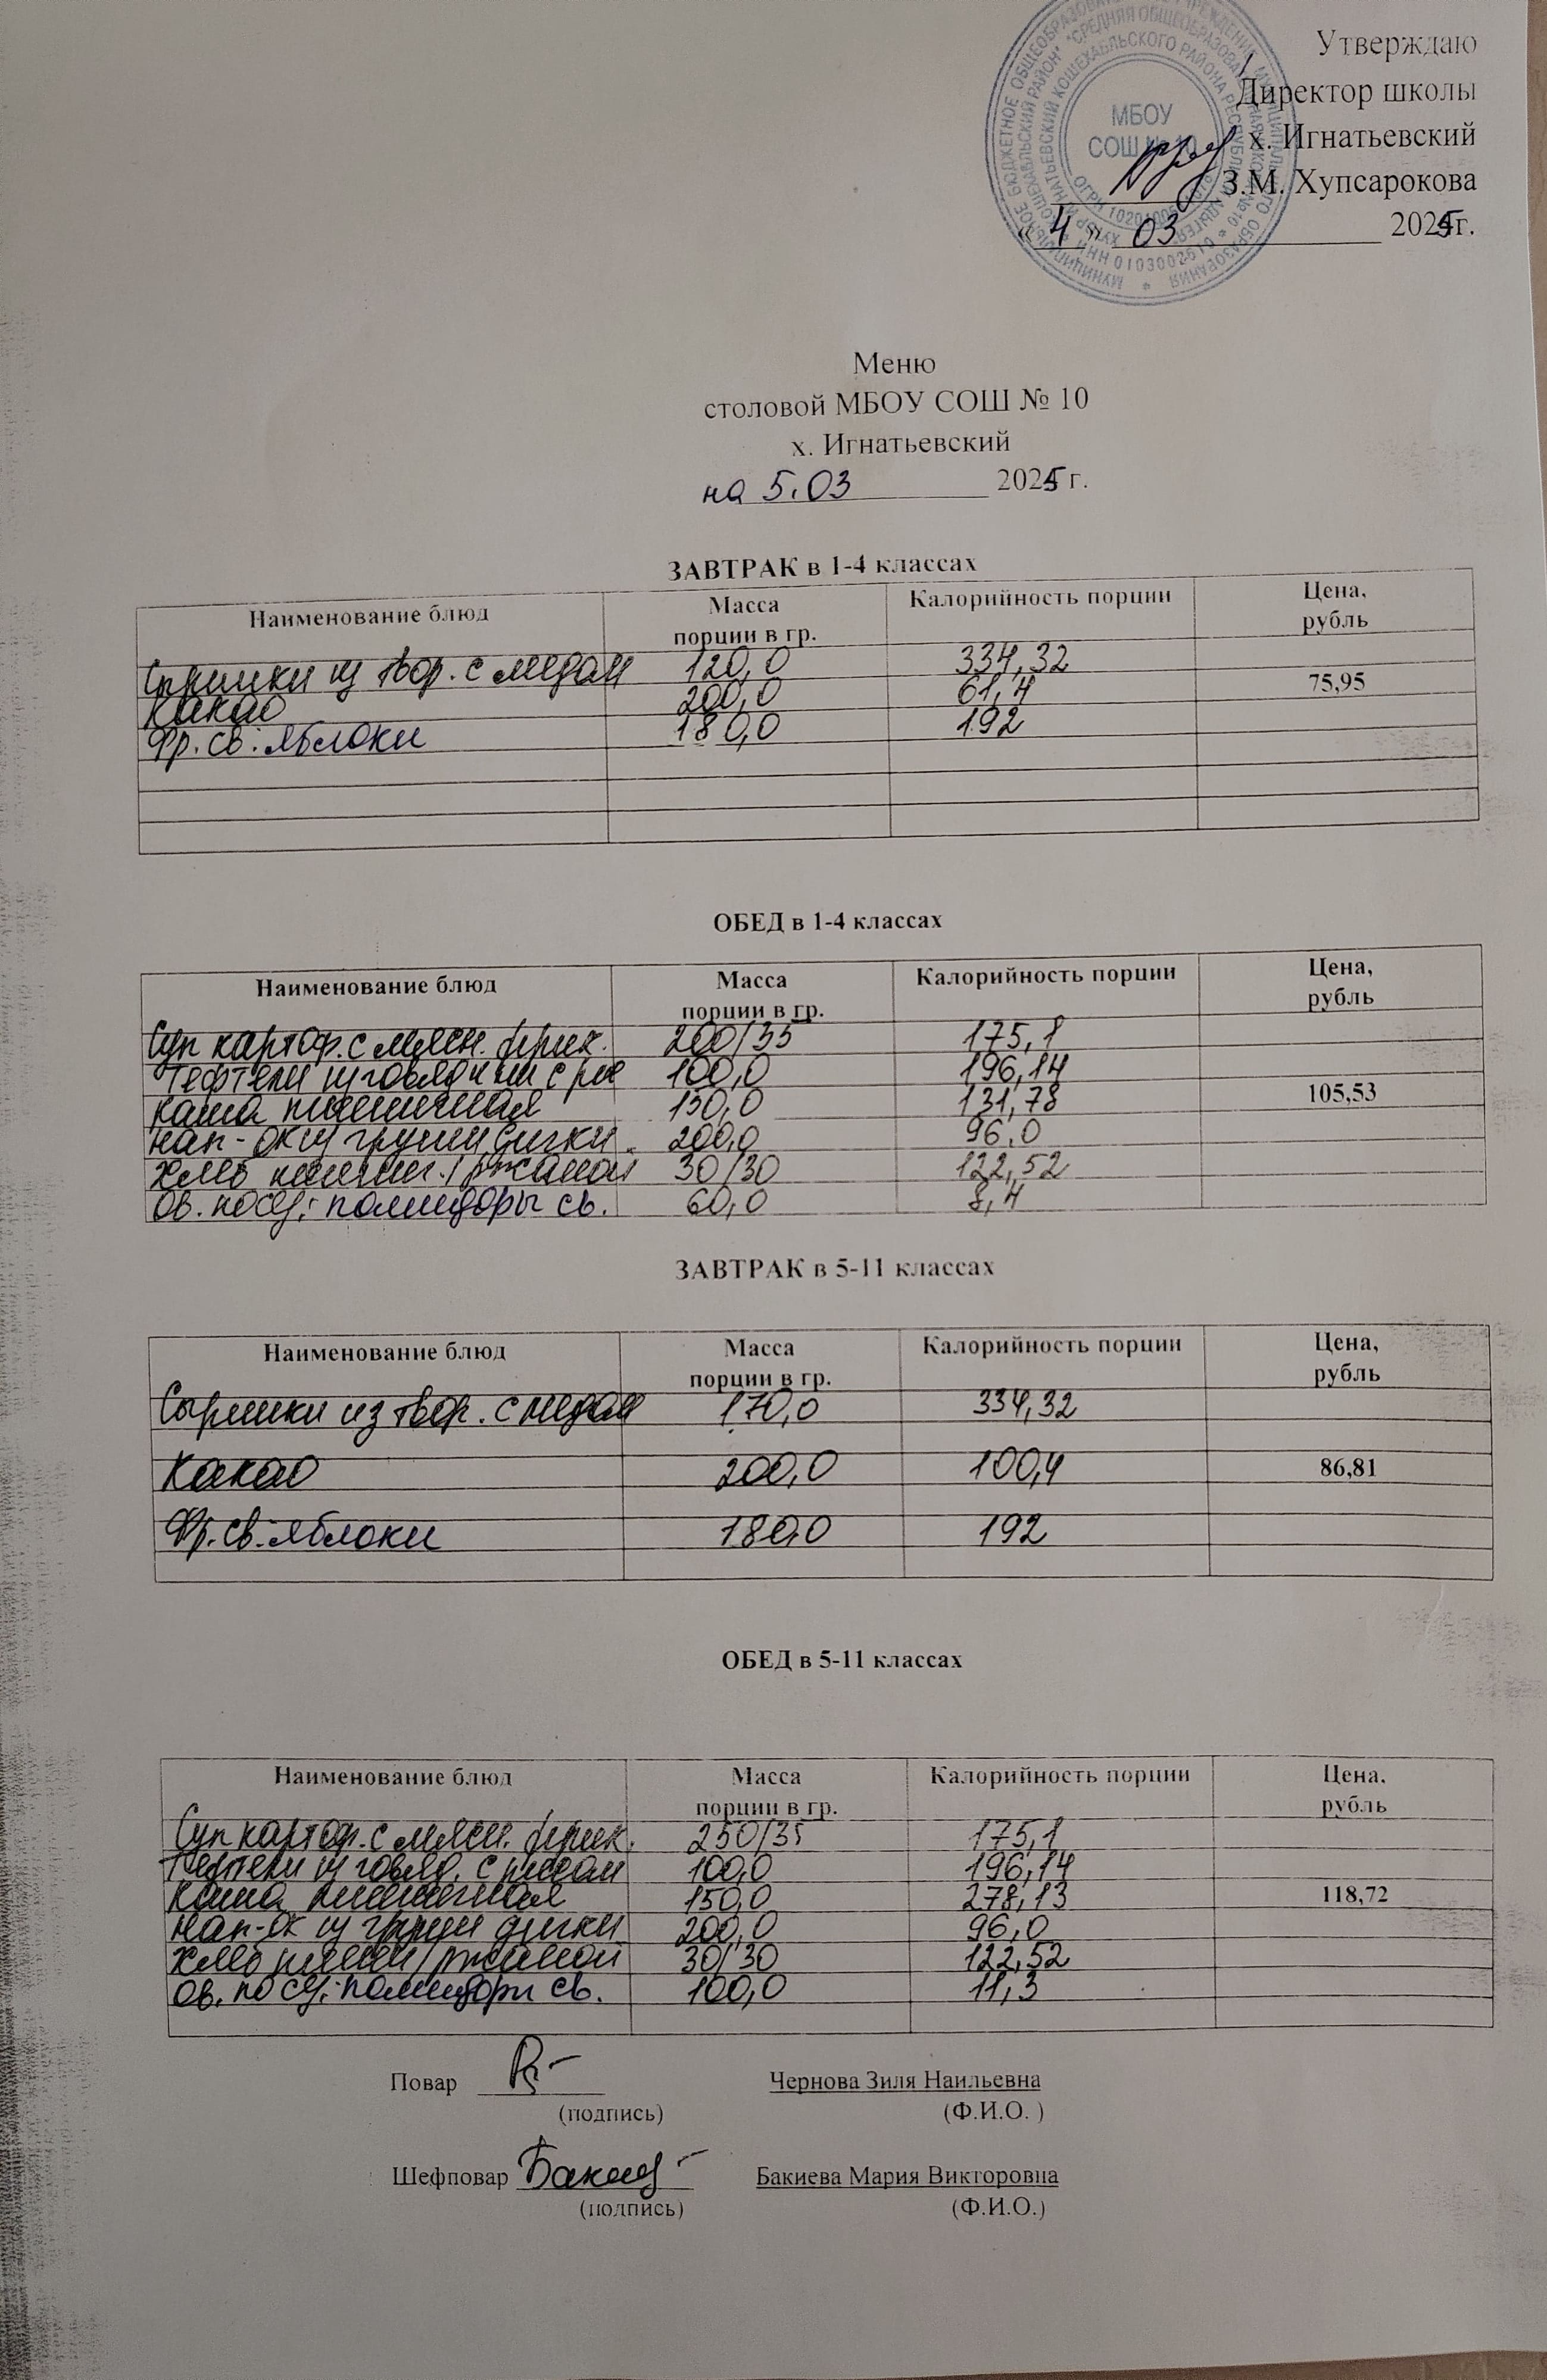 Утверждаю
Директор школы
х. Игнатьевский
З.М. Хупсарокова
«4» 03 2025г.
МБОУ
СОШ № 10
Меню
столовой МБОУ СОШ № 10
х. Игнатьевский
на 5.03 2025 г.
ЗАВТРАК в 1-4 классах
Наименование блюд Масса порции в гр. Калорийность порции Цена, рубль
Сырники из твор. с медом 120,0 334,32
75,95
Какао 200,0 61,4
Фр. св: яблоки 180,0 192
ОБЕД в 1-4 классах
Наименование блюд Масса порции в гр. Калорийность порции Цена, рубль
Суп картоф. с мясн. фрик. 200/35 175,1
Тефтели из говядины с рис 100,0 196,14
Каша пшеничная 150,0 131,78 105,53
Нап-ок из груши дички 200,0 96,0
Хлеб пшенич./ржаной 30/30 122,52
Ов. по сез: помидоры св. 60,0 8,4
ЗАВТРАК в 5-11 классах
Наименование блюд Масса порции в гр. Калорийность порции Цена, рубль
Сырники из твор. с медом 170,0 334,32
Какао 200,0 100,4 86,81
Фр. св: яблоки 180,0 192
ОБЕД в 5-11 классах
Наименование блюд Масса порции в гр. Калорийность порции Цена, рубль
Суп картоф. с мясн. фрик. 250/35 175,1
Тефтели из говяд. с рисом 100,0 196,14
Каша пшеничная 150,0 278,13 118,72
Нап-ок из груши дички 200,0 96,0
Хлеб пшен/ржаной 30/30 122,52
Ов. по сез: помидоры св. 100,0 11,3
Повар Чернова Зиля Наильевна
(подпись) (Ф.И.О. )
Шефповар Бакиев Бакиева Мария Викторовна
(подпись) (Ф.И.О.)